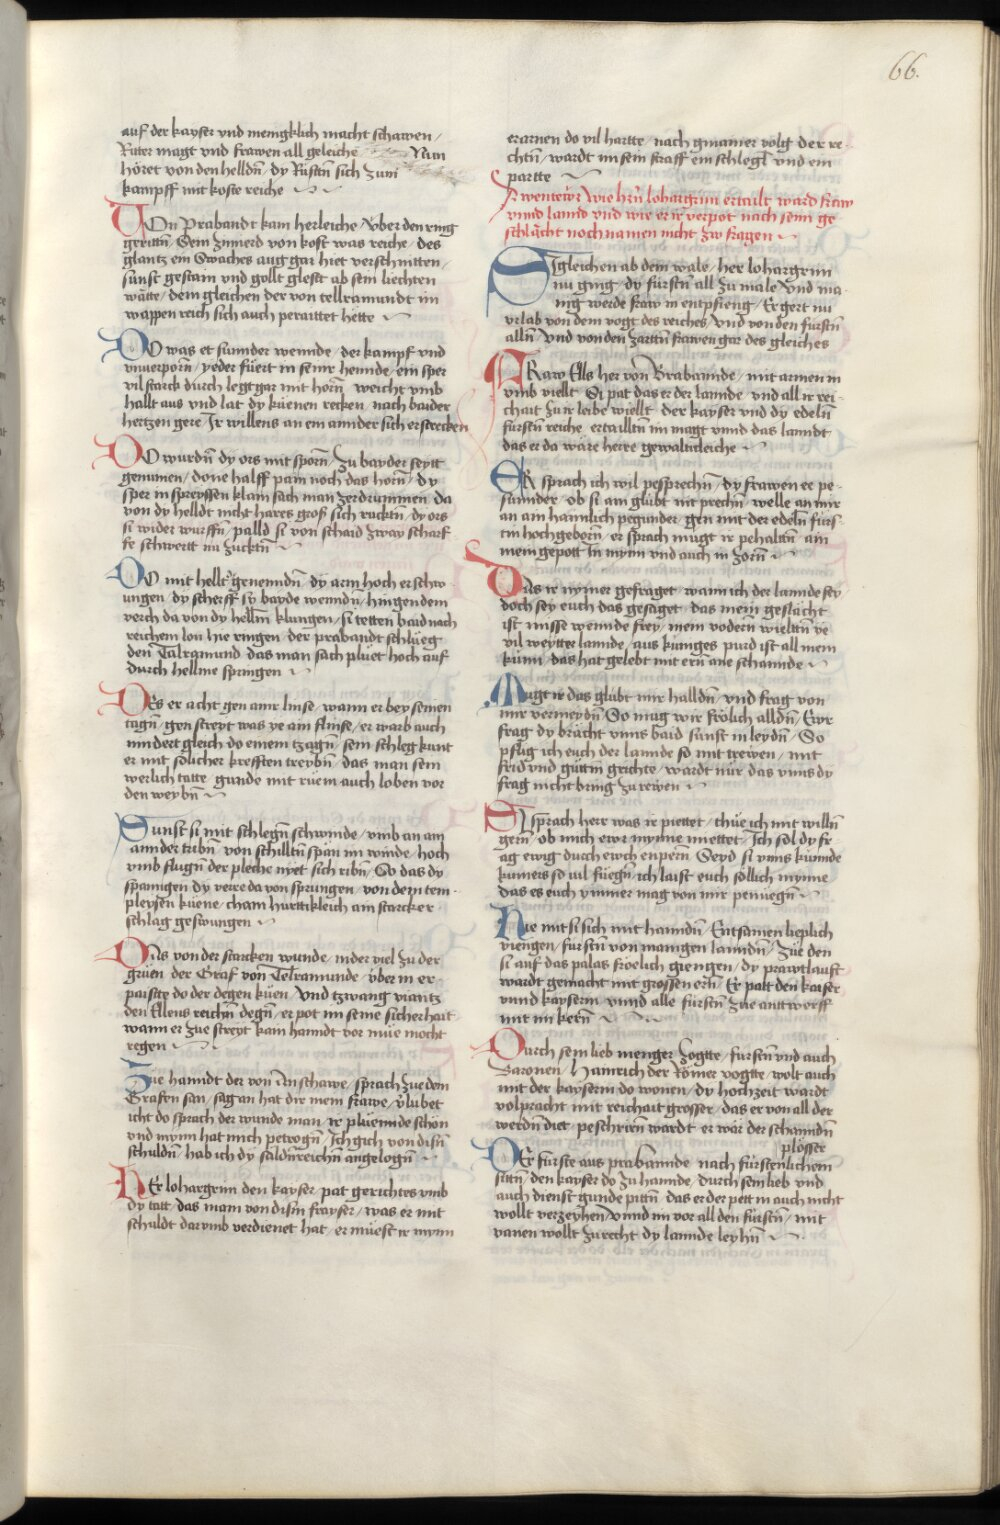 66.
auf der kayser vnd menigklich macht schawen /
Ritter magt vnd frawen all geleiche Nun
höret von den helldn̄ / dy Rustn̄ sich zum
kampff mit koste reiche
VOn Prabandt kam herleiche / vber den ring
geritn̄ / Sein zimierd von kost was reiche / des
glantz ein Swaches aug gar hiet verschniten /
sunst gestain vnd gollt glesst ab sein liechten
wätte / dem gleichen der von tellramundt im
wappen reich sich auch peraittet hette
DO was et sunnder wennde / der kampf vnd
vnuerporn̄ / yeder füert in seinr hennde / ein sper
vil starch durch leggar mit horn̄ / weicht vmb
hallt aus vnd lat dy küenen recken / nach baider
hertzen gere / Ir willens an ein annder sich erstrecken
DO wurdn̄ dy ors mit sporn̄ / zu bayder seytt
genumen / done halff pain noch das horn̄ / dy
sper in spreyssen klain sach man zerdrummen / da
von dy helldt nicht hares groß sich rucktn̄ / dy ors
si wider wurffn̄ / palld si von schaid zway scharf
fe schwertt nu zucktn̄
DO mit hellr genenndn̄ / dy arm hoch erschw
ungen / dy scherff sy bayde wenndn̄ / hin gendem
verch da von dy hellm̄ klungen / si tetten baid nach
reichem lon hie ringen / der prabandt schlüeg
den Talramund das man sach pluet hoch auf
durch hellme springen
DEs er acht gen ainr linse / wann er bey seinen
tagn̄ / gen streyt was ye ain flinse / er warb auch
nindert gleich do einem tzagn̄ / sein schleg kunt
er mit solicher krefften treybn̄ / das man sein
werlich tatte gunde mit rüem auch loben vor
den weybn̄
Sunst si mit schlegn̄ schwinde / vmb an ain
annder tribn̄ / von schilltn̄ span im winde / hoch
vmb flugn̄ der pleche nyet sich ribn̄ / So das dy
spanngen dy verre da von sprungen / von dem tem
pleysen küene / cham hurttikleich ain starcker
schlag geswungen
DAs von der starcken wunde / nider viel zu der
grüen der Graf von Telramunde / vber in er
paisste do der degen küen / vnd tzwang viantz
den Ellens reichn̄ degn̄ / er pot im seine sicherhait
wann er zue streyt kam hanndt vor müe mocht
regen
Zue hanndt der von Anschawe / sprach zue dem
Grafen san / sag an hat dir mein frawe / ylubet
icht do sprach der wunde man / ir plüennde schön
vnd mynn hat mich petrogn̄ / Ich gich von disn̄
schuldn̄ / hab ich dy säldn̄reichn̄ angelogn̄
HEr lohargrin den kayser pat gerichtes vmb
dy tatt / das man von disn̄ frayser / was er mit
schuldt darvmb verdienet hat / er müest ir mynn
erarnen do vil hartte / nach gmainer volg der re
chtn̄ / wardt im sein straff ein schlegl vnd ein
partte
Awentewr wie hr̄n lohargrim ertailt ward fraw
vnnd lannd vnd wie er ir verpot nach seim ge
schlächt noch namen nicht zw fragen
SIgleichen ab dem wale / her lohargrim
nu ging / dy fürstn̄ all zu male / vnd ma
nig werde fraw in entpfieng / Er gert nu
vrlab von dem vogt des reiches / vnd von den fürstn̄
allnn̄ / vnd von den zartn̄ frawen gar des gleiches
FRaw Els her von Brabannde / mit armen in
vmb viellt / Si pat das er der lannde / vnd all ir rei
chait zu ir leibe wiellt / der kayser vnd dy edeln̄
fürstn̄ reiche / ertailltn̄ im magt vnnd das lanndt
das er da wäre herre gewaltideleiche
ER sprach ich wil pesprechn̄ / dy frawen ee pe
sunnder / ob si am glübt nit prechn̄ / welle an mir
an ain haimlich pegunder / gen mit der edeln̄ fürs
tin hochgeborn̄ / er sprach mugt ir pehalltn̄ / ain
mein gepott / In mynn vnd auch in zorn̄
DAs ir nymer gefraget / wann ich der lannde sey
doch sey euch das gesaget / das mein geslächt
ist misse wennde frey / mein vodern̄ wieltn̄ ye
vil weytter lannde / aus kuniges purd ist all mein
künn / das hat gelebt mit ern̄ ane schannde
Mugt ir das glübt mir halldn̄ / vnd frag von
mir vermeydn̄ / So mug wir frölich alldn̄ / Ewr
frag dy brächt vnns baid sunst in leydn̄ / So
pflig ich euch der lannde so mit trewen / mit
frid vnd güttm̄ grichte / wardt nur das vnns dy
frag nicht bring zu rewen
SI sprach herr was ir piettet / thüe ich mit willn̄
gern̄ / ob mich ewr mynne miettet / Ich sol dy fr
ag ewig durch ewch enpern̄ / Seyd si vnns künnde
kumers so vil füegn̄ / ich laist euch söllich mynne
das es euch ymmer mag von mir penüegn̄
Hie mit si sich mit hanndn̄ / Entsamen lieplich
viengen / fürstn̄ von manigen lanndn̄ / Züe den
si auf das palas froelich giengen / dy prawtlaufft
wardt gemacht mit grossen ern̄ / Er patt den kaiser
vnnd kaysern̄ / vnnd alle fürstn̄ zue anttwerff
mit im kern̄
Durch sein lieb menger zogtte / fürstn̄ vnd auch
Baronen / Hainrich der Römer vogtte / wolt auch
mit der kaysern̄ do wonen / dy hochzeit wardt
volpracht mit reichait grosser / das er von all der
werdn̄ diet peschrirn̄ wardt er wär der schanndn̄
plösser
DEr fürste aus prabannde nach fürstenlichem
sittn̄ / den kayser dy zu hannde / durch sein lieb vnd
auch dienst gunde pittn̄ / das er der pett in auch nicht
wollt verzeyhen / vnnd im vor all den fürstn̄ / mit
vanen wollt zu recht dy lannde leyhn̄